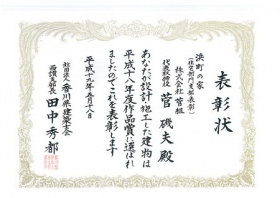 表彰状
浜町の家
(住宅部門支部表彰)
株式会社 菅組
代表取締役 菅 磯夫 殿
あなたが設計施工した建物は
平成十八年度作品賞に選ばれ
ましたのでこれを表彰します
平成十九年五月十八日
社団法人 香川県建築士会
西讃支部長 田中秀都